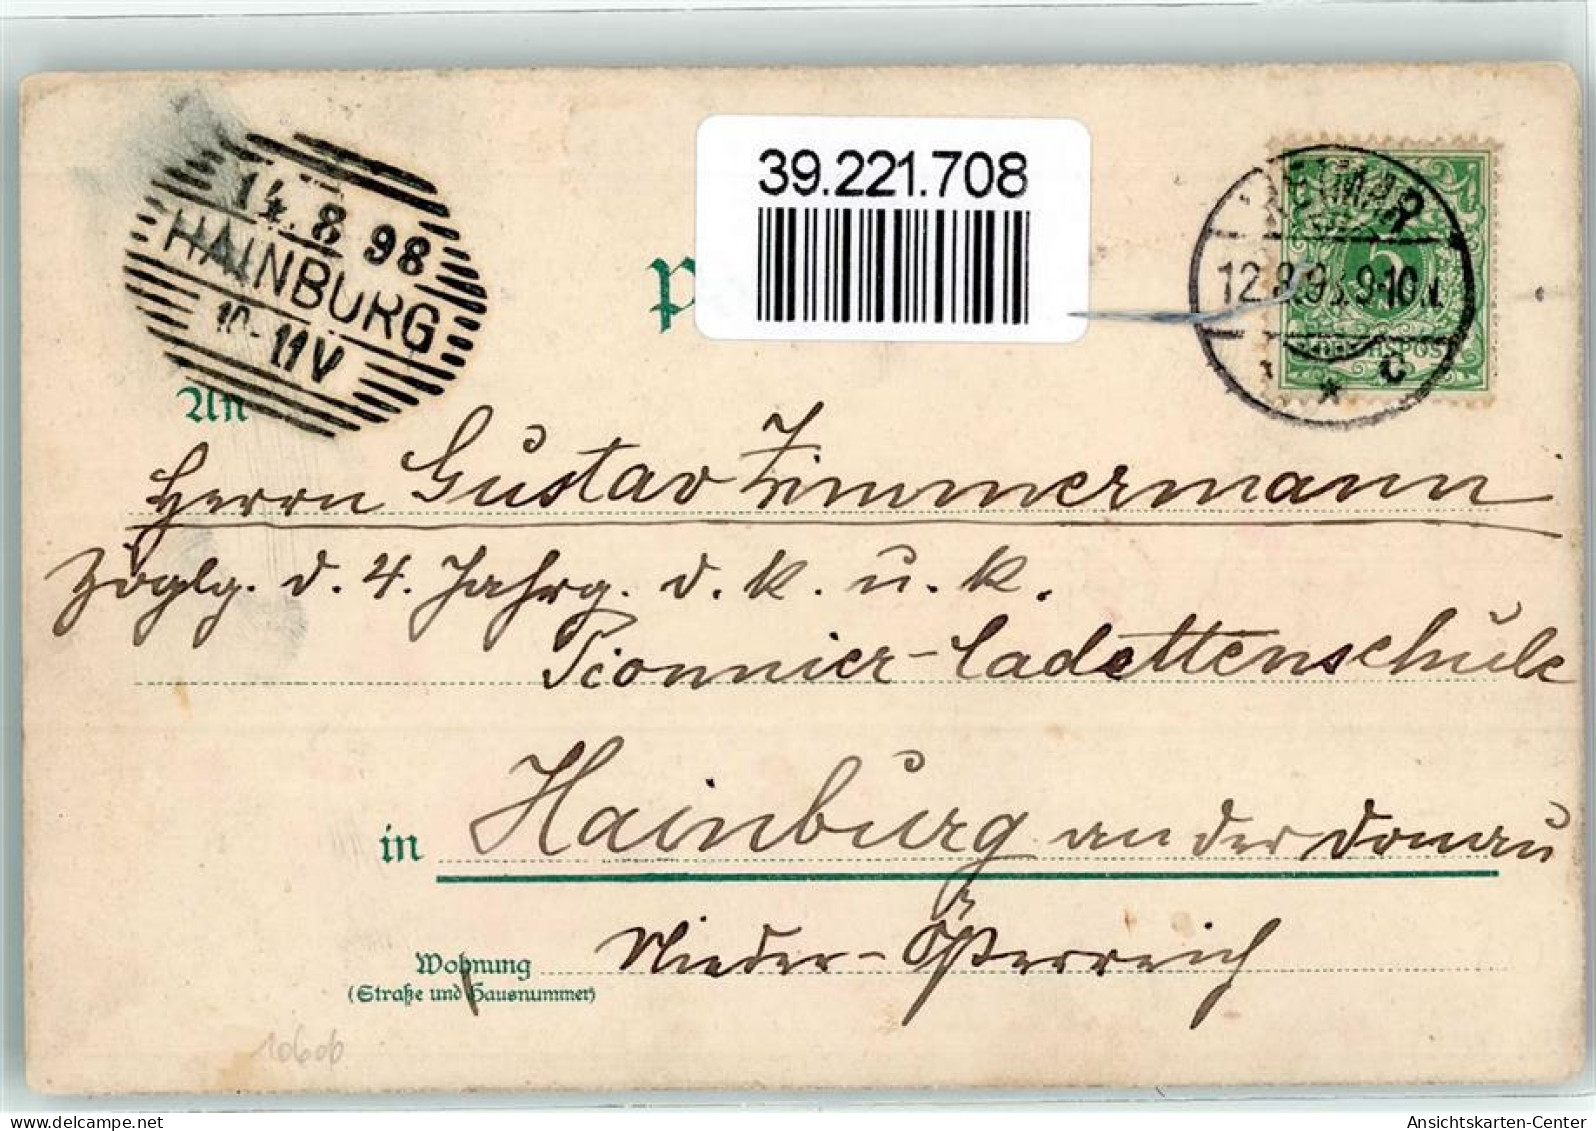 39.221.708
14. 8 98
HAINBURG
10-11V
WEIMAR
12.8.98.9-10N.
* C
5
An
Herrn Gustav Zimmermann
Zöglg. d. 4. Jahrg. d. k. u. k.
Pionnier-Cadettenschule
in Hainburg an der Donau
Nieder-Österreich
Wohnung
(Straße und Hausnummer)
10600
Ansichtskarten-Center